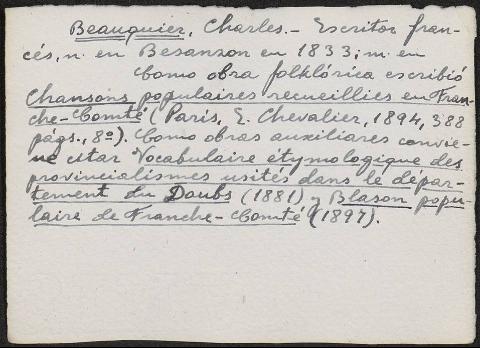 Beauquier, Charles.- Escritor fran-
cés, n. en Besanzon en 1833; m. en
Como obra folklórica escribió
Chansons populaires recueillies en Fran-
che-Comté (Paris, E. Chevalier, 1894, 388
págs., 8º). Como obras auxiliares convie-
ne citar Vocabulaire étymologique des
provincialismes usités dans le dépar-
tement du Doubs (1881) y Blason popu-
laire de Franche-Comté (1897).